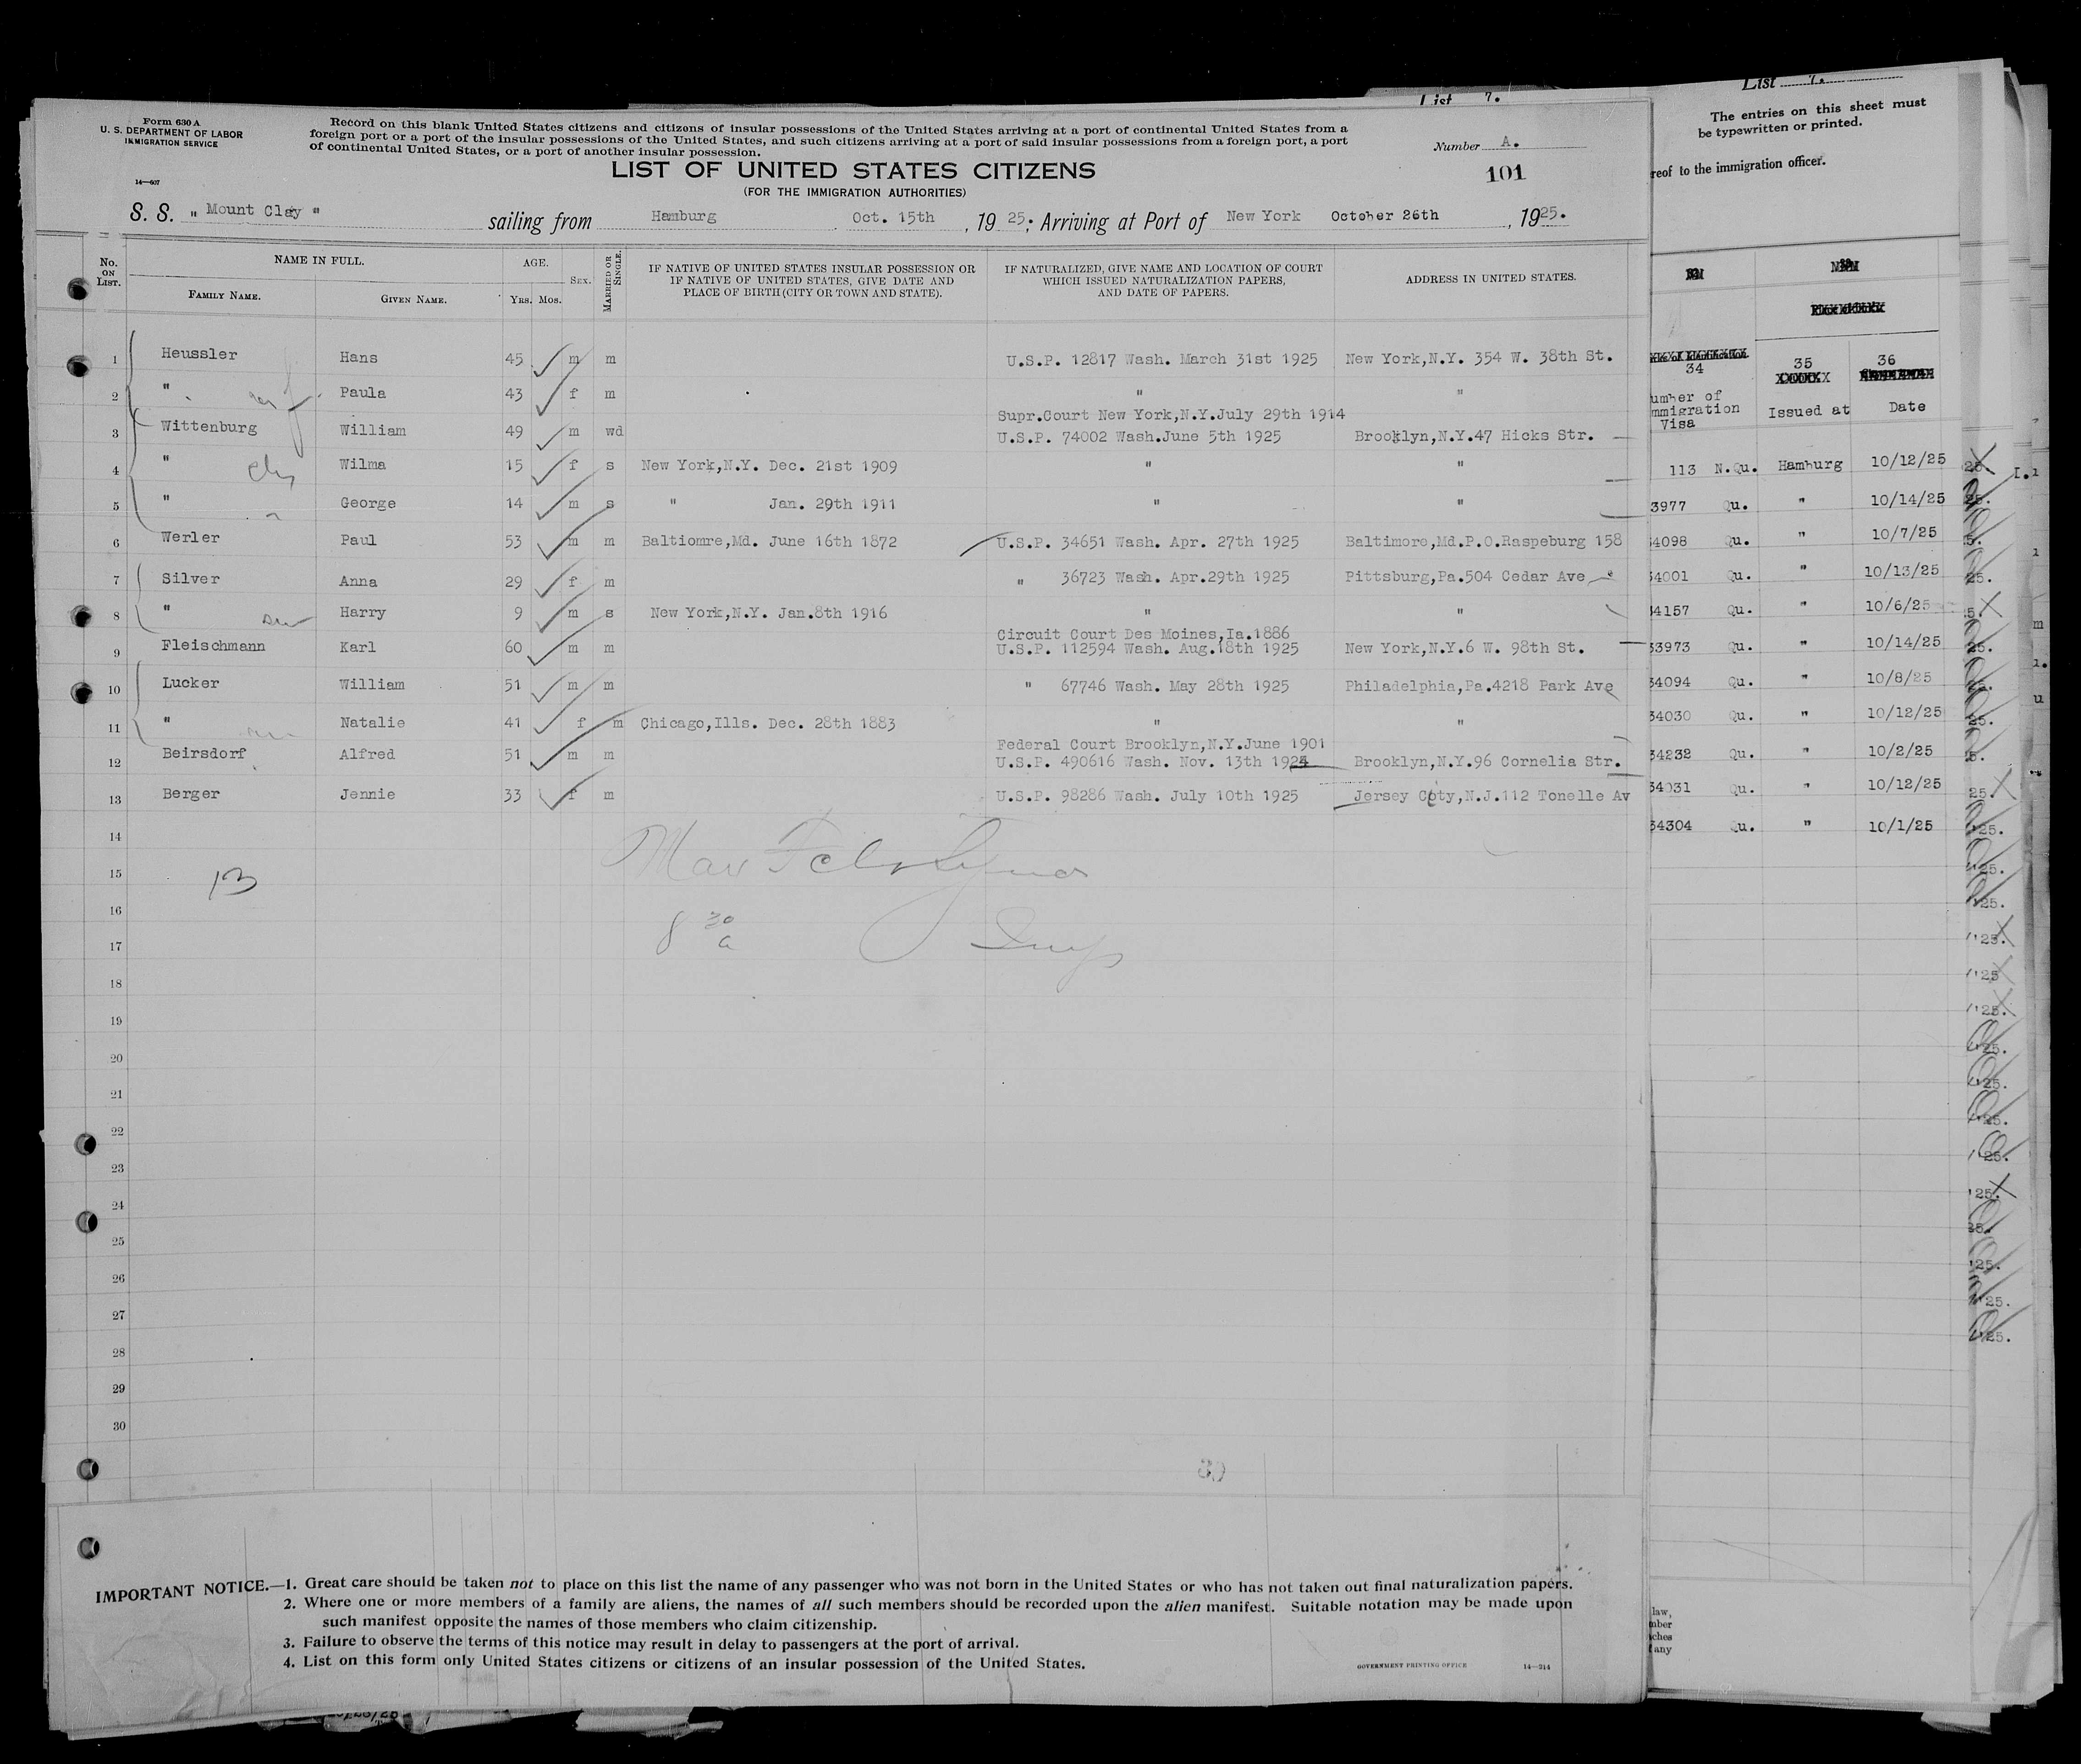 List 7.
The entries on this sheet must
be typewritten or printed.
reof to the immigration officer.
List 7.
Form 630 A
U. S. DEPARTMENT OF LABOR
IMMIGRATION SERVICE
14—607
Record on this blank United States citizens and citizens of insular possessions of the United States arriving at a port of continental United States from a
foreign port or a port of the insular possessions of the United States, and such citizens arriving at a port of said insular possessions from a foreign port, a port
of continental United States, or a port of another insular possession.
Number A.
101
LIST OF UNITED STATES CITIZENS
(FOR THE IMMIGRATION AUTHORITIES)
S. S. " Mount Clay " sailing from Hamburg Oct. 15th , 19 25; Arriving at Port of New York October 26th , 1925.
No. ON LIST. NAME IN FULL. FAMILY NAME. GIVEN NAME. AGE. YRS. MOS. SEX. MARRIED OR SINGLE.
IF NATIVE OF UNITED STATES INSULAR POSSESSION OR
IF NATIVE OF UNITED STATES, GIVE DATE AND
PLACE OF BIRTH (CITY OR TOWN AND STATE).
IF NATURALIZED, GIVE NAME AND LOCATION OF COURT
WHICH ISSUED NATURALIZATION PAPERS,
AND DATE OF PAPERS.
ADDRESS IN UNITED STATES.
1 Heussler Hans 45 m m U.S.P. 12817 Wash. March 31st 1925 New York,N.Y. 354 W. 38th St.
2 " Paula 43 f m " "
Supr.Court New York,N.Y.July 29th 1914
3 Wittenburg William 49 m wd U.S.P. 74002 Wash.June 5th 1925 Brooklyn,N.Y.47 Hicks Str.
4 " Wilma 15 f s New York,N.Y. Dec. 21st 1909 " "
5 " George 14 m s " Jan. 29th 1911 " "
6 Werler Paul 53 m m Baltiomre,Md. June 16th 1872 U.S.P. 34651 Wash. Apr. 27th 1925 Baltimore,Md.P.O.Raspeburg 158
7 Silver Anna 29 f m " 36723 Wash. Apr.29th 1925 Pittsburg,Pa.504 Cedar Ave
8 " Harry 9 m s New York,N.Y. Jan.8th 1916 " "
Circuit Court Des Moines,Ia.1886
9 Fleischmann Karl 60 m m U.S.P. 112594 Wash. Aug.18th 1925 New York,N.Y.6 W. 98th St.
10 Lucker William 51 m m " 67746 Wash. May 28th 1925 Philadelphia,Pa.4218 Park Ave
11 " Natalie 41 f m Chicago,Ills. Dec. 28th 1883 " "
Federal Court Brooklyn,N.Y.June 1901
12 Beirsdorf Alfred 51 m m U.S.P. 490616 Wash. Nov. 13th 1924 Brooklyn,N.Y.96 Cornelia Str.
13 Berger Jennie 33 f m U.S.P. 98286 Wash. July 10th 1925 Jersey City,N.J.112 Tonelle Av
14
15
13
16
8 30 a
Insp
17
18
19
20
21
22
23
24
25
26
27
28
29
30
34 35 36
umber of
mmigration
Visa
Issued at Date
113 N.Qu. Hamburg 10/12/25
3977 Qu. " 10/14/25
34098 Qu. " 10/7/25
34001 Qu. " 10/13/25
34157 Qu. " 10/6/25
33973 Qu. " 10/14/25
34094 Qu. " 10/8/25
34030 Qu. " 10/12/25
34232 Qu. " 10/2/25
34031 Qu. " 10/12/25
34304 Qu. " 10/1/25
IMPORTANT NOTICE.—1. Great care should be taken not to place on this list the name of any passenger who was not born in the United States or who has not taken out final naturalization papers.
2. Where one or more members of a family are aliens, the names of all such members should be recorded upon the alien manifest. Suitable notation may be made upon
such manifest opposite the names of those members who claim citizenship.
3. Failure to observe the terms of this notice may result in delay to passengers at the port of arrival.
4. List on this form only United States citizens or citizens of an insular possession of the United States.
GOVERNMENT PRINTING OFFICE 14—214
law,
mber
ches
any